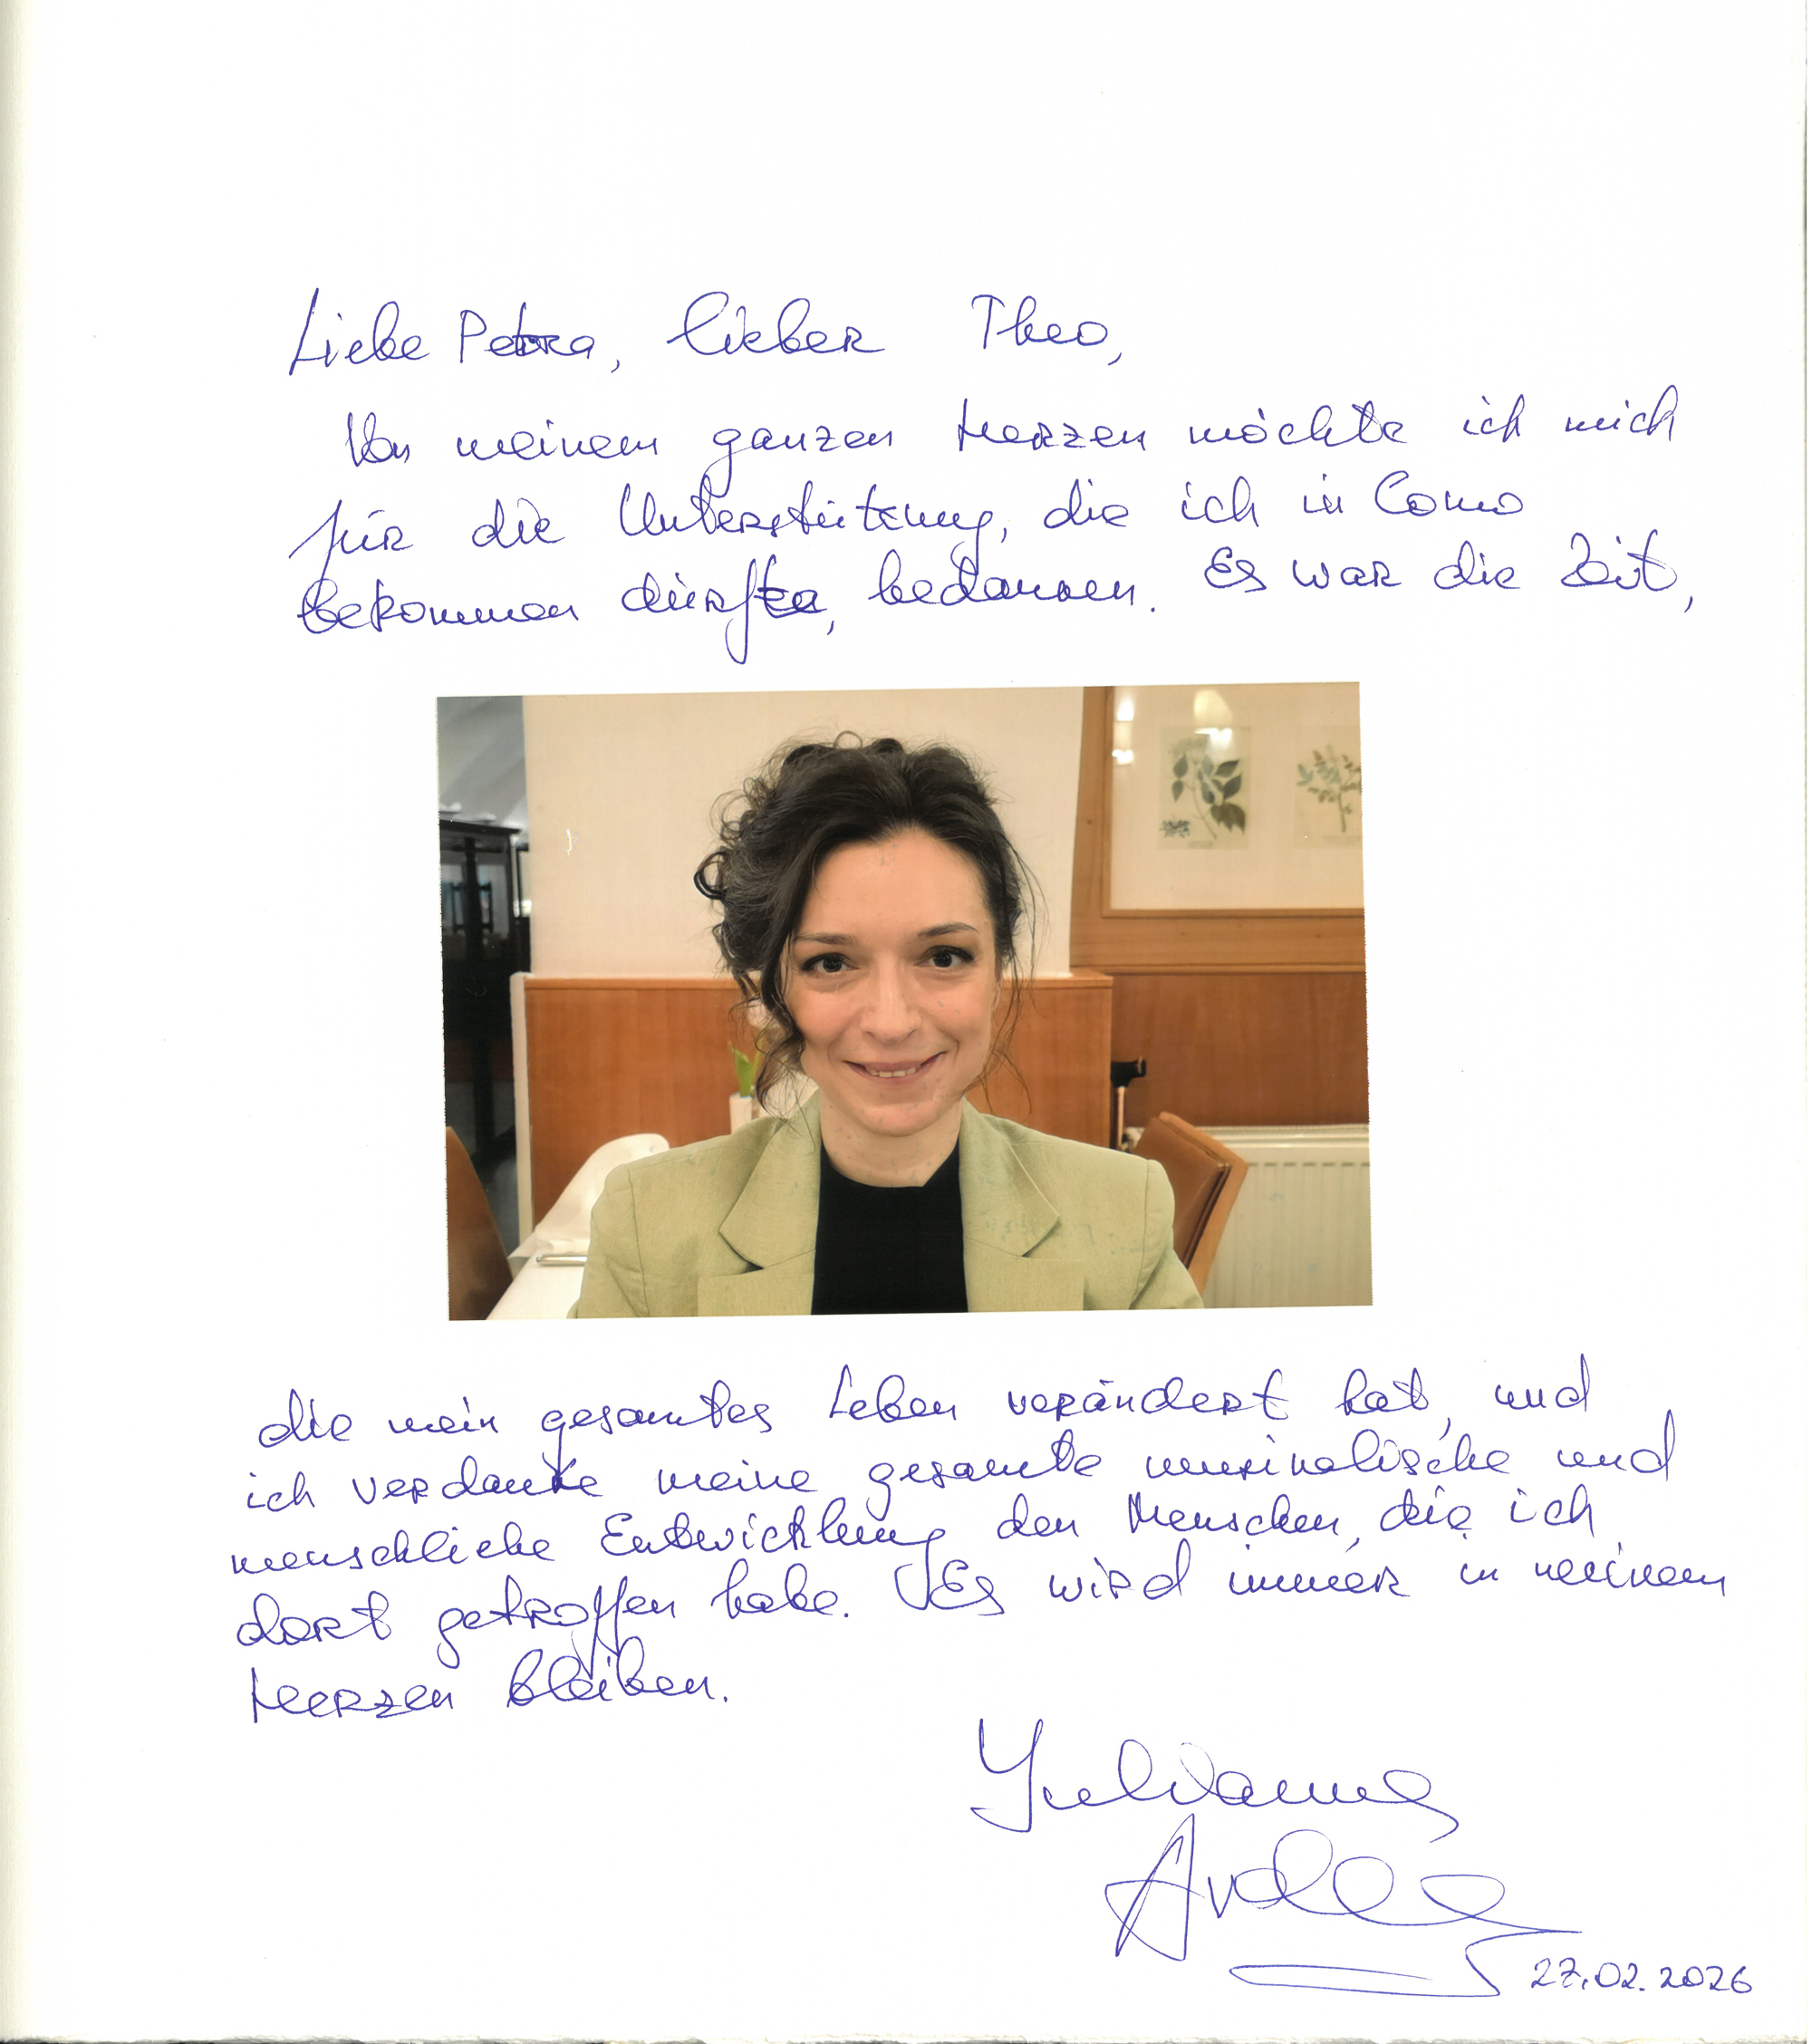 Liebe Petra, lieber Theo,
Von meinem ganzen Herzen möchte ich mich
für die Unterstützung, die ich in Como
bekommen dürfte, bedanken. Es war die Zeit,
die mein gesamtes Leben verändert hat, und
ich verdanke meine gesamte musikalische und
menschliche Entwicklung den Menschen, die ich
dort getroffen habe. Es wird immer in meinem
Herzen bleiben.
Yulianna
27.02.2026